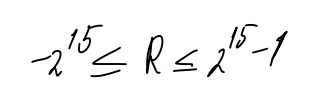 -2^15 ≤ R ≤ 2^15-1